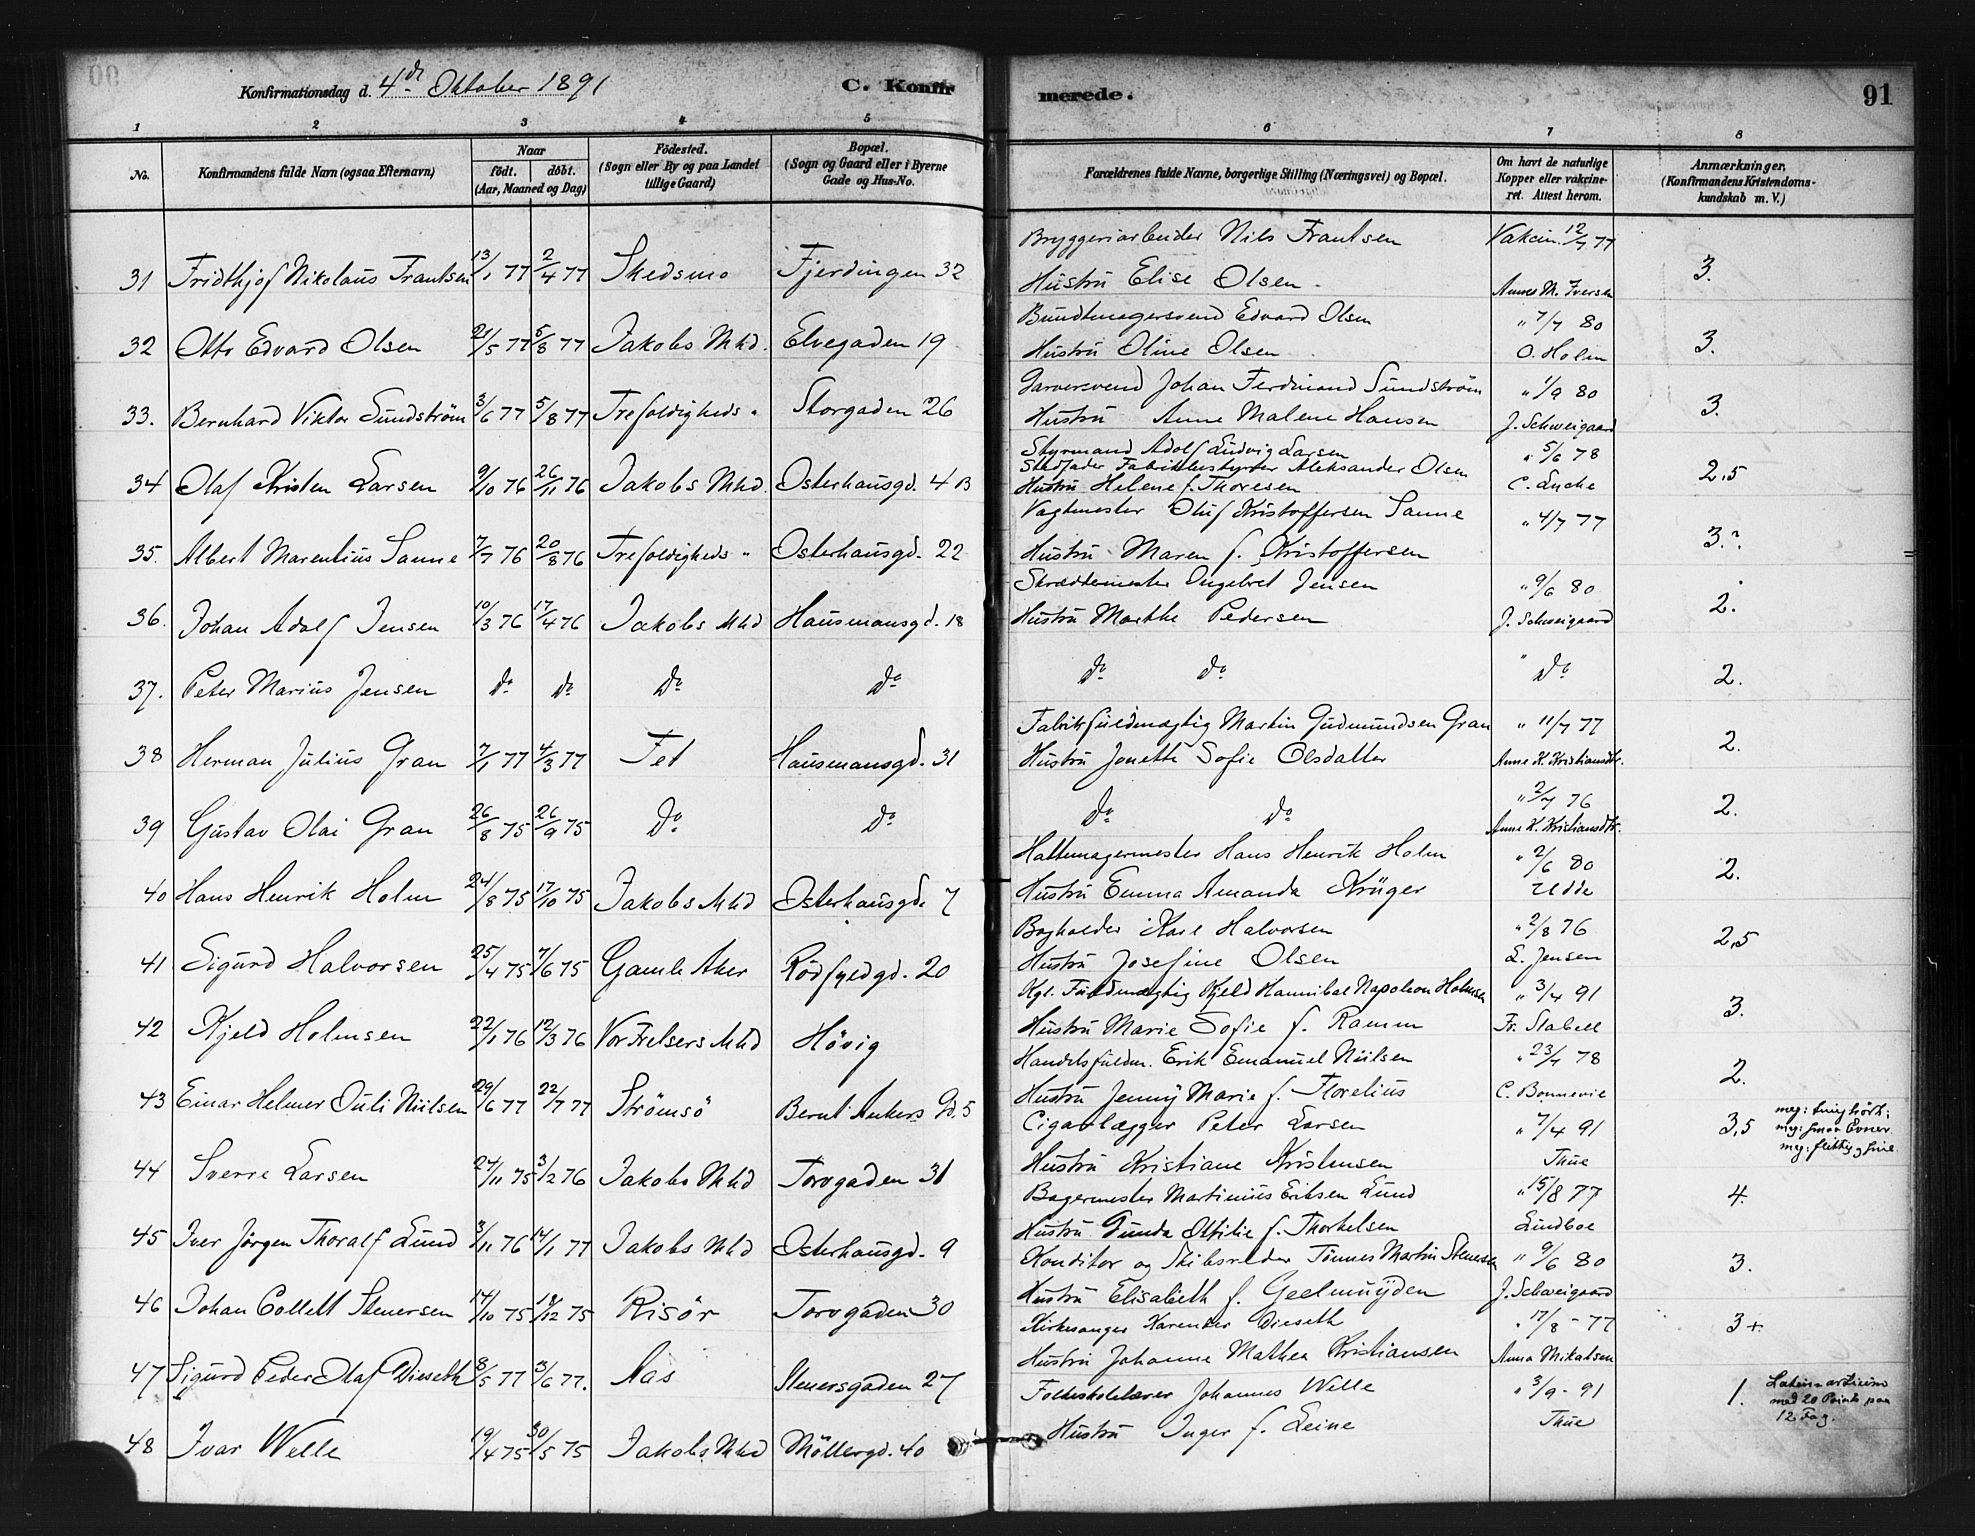 Konfirmationsdag d. 4de Oktober 1891
C. Konfirmerede.
91
1 2 3 4 5 6 7 8
No.
Konfirmandens fulde Navn (ogsaa Efternavn)
Naar
födt. döbt.
(Aar, Maaned og Dag)
Födested.
(Sogn eller By og paa Landet
tillige Gaard)
Bopæl.
(Sogn og Gaard eller i Byerne
Gade og Hus-No.
Forældrenes fulde Navne, borgerlige Stilling (Næringsvei) og Bopæl.
Om havt de naturlige
Kopper eller vakcine-
ret. Attest herom.
Anmærkninger,
(Konfirmandens Kristendoms-
kundskab m. V.)
31 Fridthjof Nikolaus Frantsen 13/1 77 2/4 77 Skedsmo Fjerdingen 32
Bryggeriarbeider Nils Frantsen Vakcin. 12/7 77
Hustru Elise Olsen Anne M. Iversen 3.
32 Otto Edvard Olsen 21/5 77 5/8 77 Jakobs Mhd. Elvegaden 19
Bundtmagersvend Edvard Olsen " 7/7 80
Hustru Oline Olsen O. Holm 3.
33. Bernhard Viktor Sundström 3/6 77 5/8 77 Trefoldigheds " Storgaden 26
Garversvend Johan Ferdinand Sundström " 1/9 80
Hustru Anne Malene Hansen J. Schweigaard 3.
34 Olaf Kristen Larsen 9/10 76 26/11 76 Jakobs Mhd. Osterhausgd. 4 B
Styrmand Adolf Ludvig Larsen " 5/6 78
Stedfader Fabrikbestyrer Aleksander Olsen
Hustru Helene f. Thoresen C. Lycke 2,5
35. Albert Marentius Sanne 7/7 76 20/8 76 Trefoldigheds " Osterhausgd. 22
Vagtmester Oluf Kristoffersen Sanne " 4/7 77
Hustru Maren f. Kristoffersen 3.?
36. Johan Adolf Jensen 10/3 76 17/4 76 Jakobs Mhd Hausmansgd. 18
Skræddermester Ingebret Jensen " 9/6 80
Hustru Marthe Pedersen J. Schweigaard 2.
37. Peter Marius Jensen do do do do
do do " do 2.
38 Herman Julius Gran 7/1 77 4/3 77 Fet Hausmansgd. 31
Fabrikfuldmægtig Martin Gudmundsen Gran " 11/7 77
Hustru Jonette Sofie Olsdatter Anne K. Kristiansdtr. 2.
39 Gustav Olai Gran 26/8 75 26/9 75 do do
do do " 2/7 76
Anne K. Kristiansdtr. 2.
40 Hans Henrik Holm 24/8 75 17/10 75 Jakobs Mhd Osterhausgd. 7
Hattemagermester Hans Henrik Holm " 2/6 80
Hustru Emma Amanda Krüger Udde 2.
41 Sigurd Halvorsen 25/4 75 7/6 75 Gamle Aker Rödfyldgd. 20
Bogholder Karl Halvorsen " 2/8 76
Hustru Josefine Olsen L. Jensen 2,5
42 Kjeld Holmsen 22/1 76 12/3 76 Vor Frelsers Mhd Hövig
Kgl. Fuldmægtig Kjeld Hannibal Napoleon Holmsen " 3/4 91
Hustru Marie Sofie f. Ramm Fr. Stabell 3.
43 Einar Helmer Juli Niilsen 29/6 77 22/7 77 Strömsö Bernt Ankers Gd. 5
Handelsfuldm. Erik Emanuel Niilsen " 23/7 78
Hustru Jenny Marie f. Florelius C. Bonnevie 2.
44 Sverre Larsen 24/11 75 3/12 76 Jakobs Mhd Torvgaden 31
Cigarlægger Peter Larsen " 7/4 91
Hustru Kristiane Kristensen Thue 3,5
meg: tunghört;
meg: smaa Evner
meg: flittig
45 Iver Jörgen Thoralf Lund 3/11 76 14/1 77 Jakobs Mhd Osterhausgd. 9
Bagermester Martinius Eriksen Lund " 15/8 77
Hustru Gunda Ottilie f. Thorkelsen Lindboe 4.
46 Johan Collett Stenersen 14/10 75 12/12 75 Risör Torvgaden 30
Konditor og Skibsreder Tönnes Martin Stenersen " 9/6 80
Hustru Elisabeth f. Geelmuÿden J. Schweigaard 3.
47 Sigurd Peder Olaf Dieseth 8/5 77 3/6 77. Aas Stenersgaden 27
Kirkesanger Karenker Dieseth " 17/8 - 77
Hustru Johanne Mathea Kristiansen Anna Mikalsen 3+.
48 Ivar Welle 19/4 75 30/5 75 Jakobs Mhd Möllergd. 40
Folkeskolelærer Johannes Welle " 3/9 - 91
Hustru Inger f. Leine Thue 1.
Latin-artium
med 20 Points paa
12 Fag.